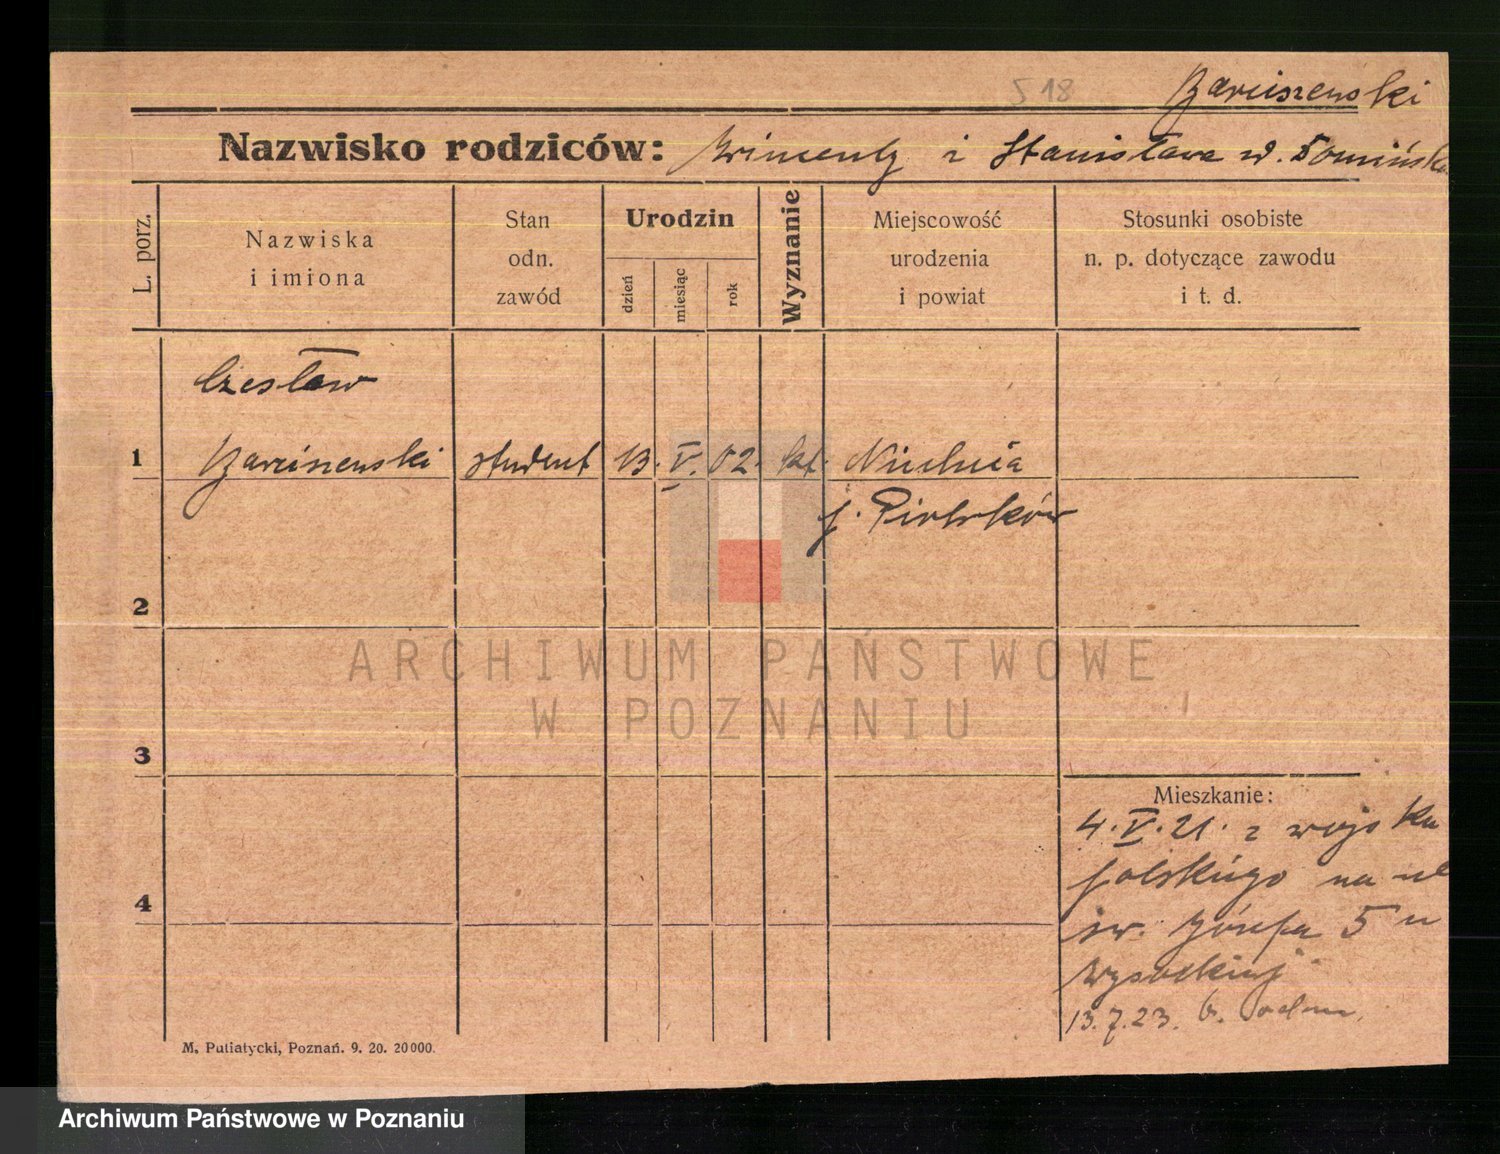 518
Barciszewski
Nazwisko rodziców: Wincenty i Stanisława d. Tomińska
L. porz.
Nazwiska
i imiona
Stan
odn.
zawód
Urodzin
dzień
miesiąc
rok
Wyznanie
Miejscowość
urodzenia
i powiat
Stosunki osobiste
n. p. dotyczące zawodu
i t. d.
Czesław
1 Barciszewski student 13. V. 02. kt.
p. Piotrków
2
3
4
Mieszkanie:
4. V. 21. z wojska
polskiego na ul
św. Józefa 5 u
Wysockiej
13. 7. 23.
M. Putiatycki, Poznań. 9. 20. 20000.
ARCHIWUM PAŃSTWOWE
W POZNANIU
Archiwum Państwowe w Poznaniu